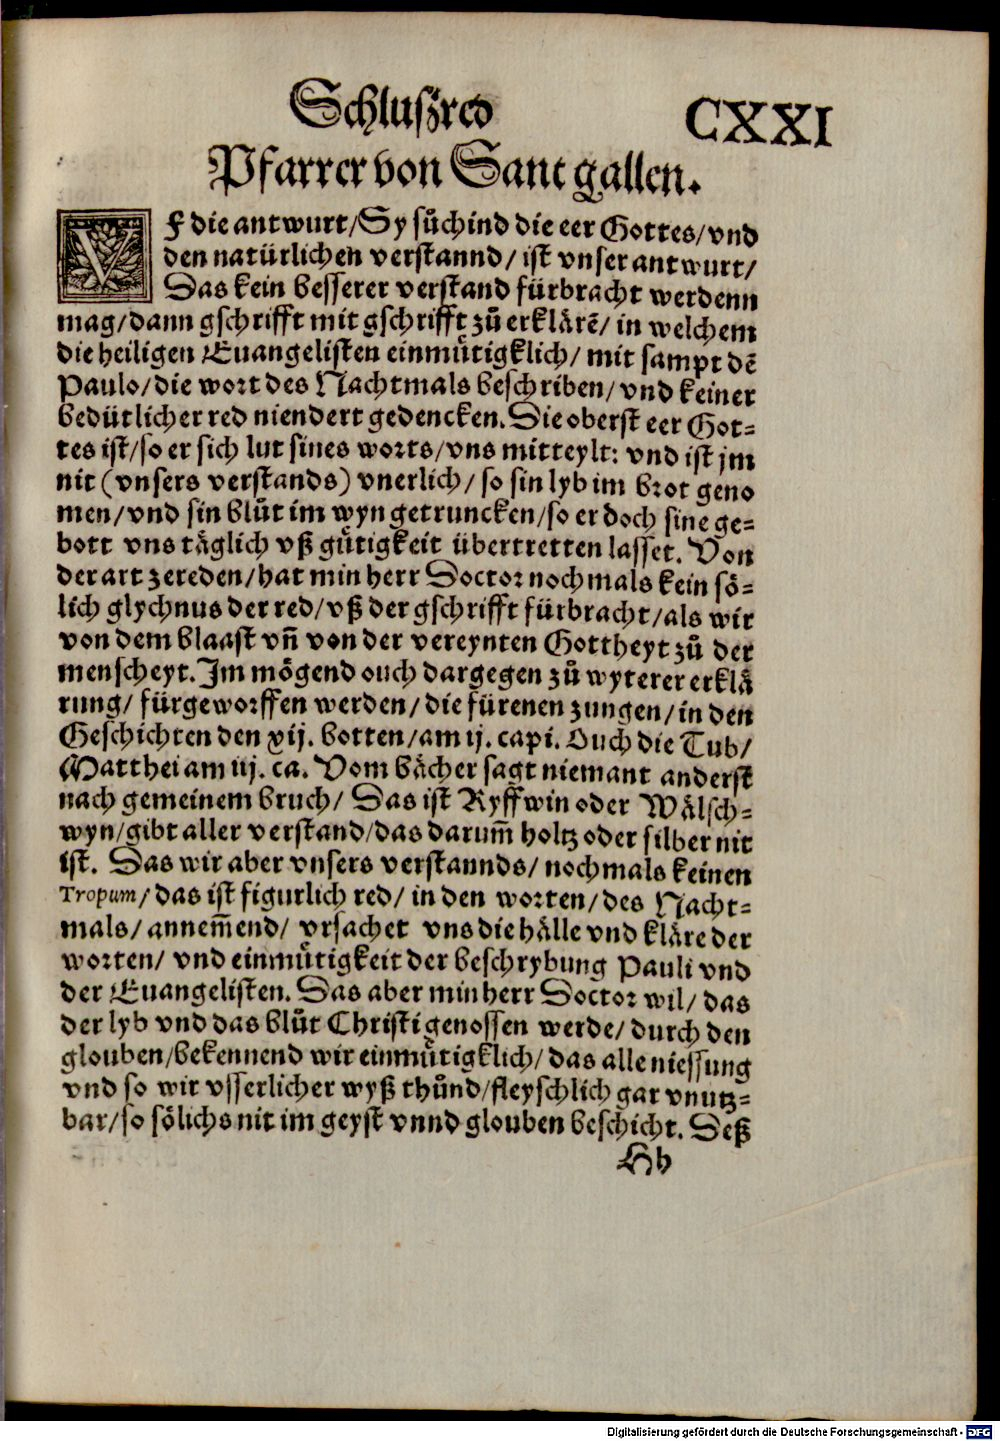 Schluszred CXXI
Pfarrer von Sant gallen.
VF die antwurt/Sy sůchind die eer Gottes/vnd
den natürlichen verstannd/ ist vnser antwurt/
Das kein besserer verstand fürbracht werdenn
mag/dann gschrifft mit gschrifft zů erklärẽ/ in welchem
die heiligen Euangelisten einmůtigklich/ mit sampt dẽ
Paulo/die wort des Nachtmals beschriben/vnd keiner
bedütlicher red niendert gedencken. Die oberst eer Got-
tes ist/so er sich lut sines worts/vns mitteylt: vnd ist jm
nit (vnsers verstands) vnerlich/ so sin lyb im brot geno
men/vnd sin blůt im wyn getruncken/so er doch sine ge-
bott vns täglich vß gůtigkeit übertretten lasset. Von
der art zereden/hat min herr Doctor nochmals kein sö-
lich glychnus der red/vß der gschrifft fürbracht/als wir
von dem blaast vñ von der vereynten Gottheyt zů der
menscheyt. Im mögend ouch dargegen zů wyterer erklä
rung/ fürgeworffen werden/die fürenen zungen/in den
Geschichten den xij. botten/am ij. capi. Ouch die Tub/
Matthei am iij. ca. Vom bächer sagt niemant anderst
nach gemeinem bruch/ Das ist Ryffwin oder Wälsch-
wyn/gibt aller verstand/das darum̃ holtz oder silber nit
ist. Das wir aber vnsers verstannds/ nochmals keinen
Tropum/das ist figurlich red/ in den worten/des Nacht-
mals/annem̃end/ vrsachet vns die hälle vnd kläre der
worten/ vnd einmůtigkeit der beschrybung Pauli vnd
der Euangelisten. Das aber min herr Doctor wil/ das
der lyb vnd das blůt Christi genossen werde/durch den
glouben/bekennend wir einmůtigklich/das alle niessung
vnd so wir vsserlicher wyß thůnd/fleyschlich gar vnutz-
bar/so sölichs nit im geyst vnnd glouben beschicht. Deß
Hh
Digitalisierung gefördert durch die Deutsche Forschungsgemeinschaft - DFG